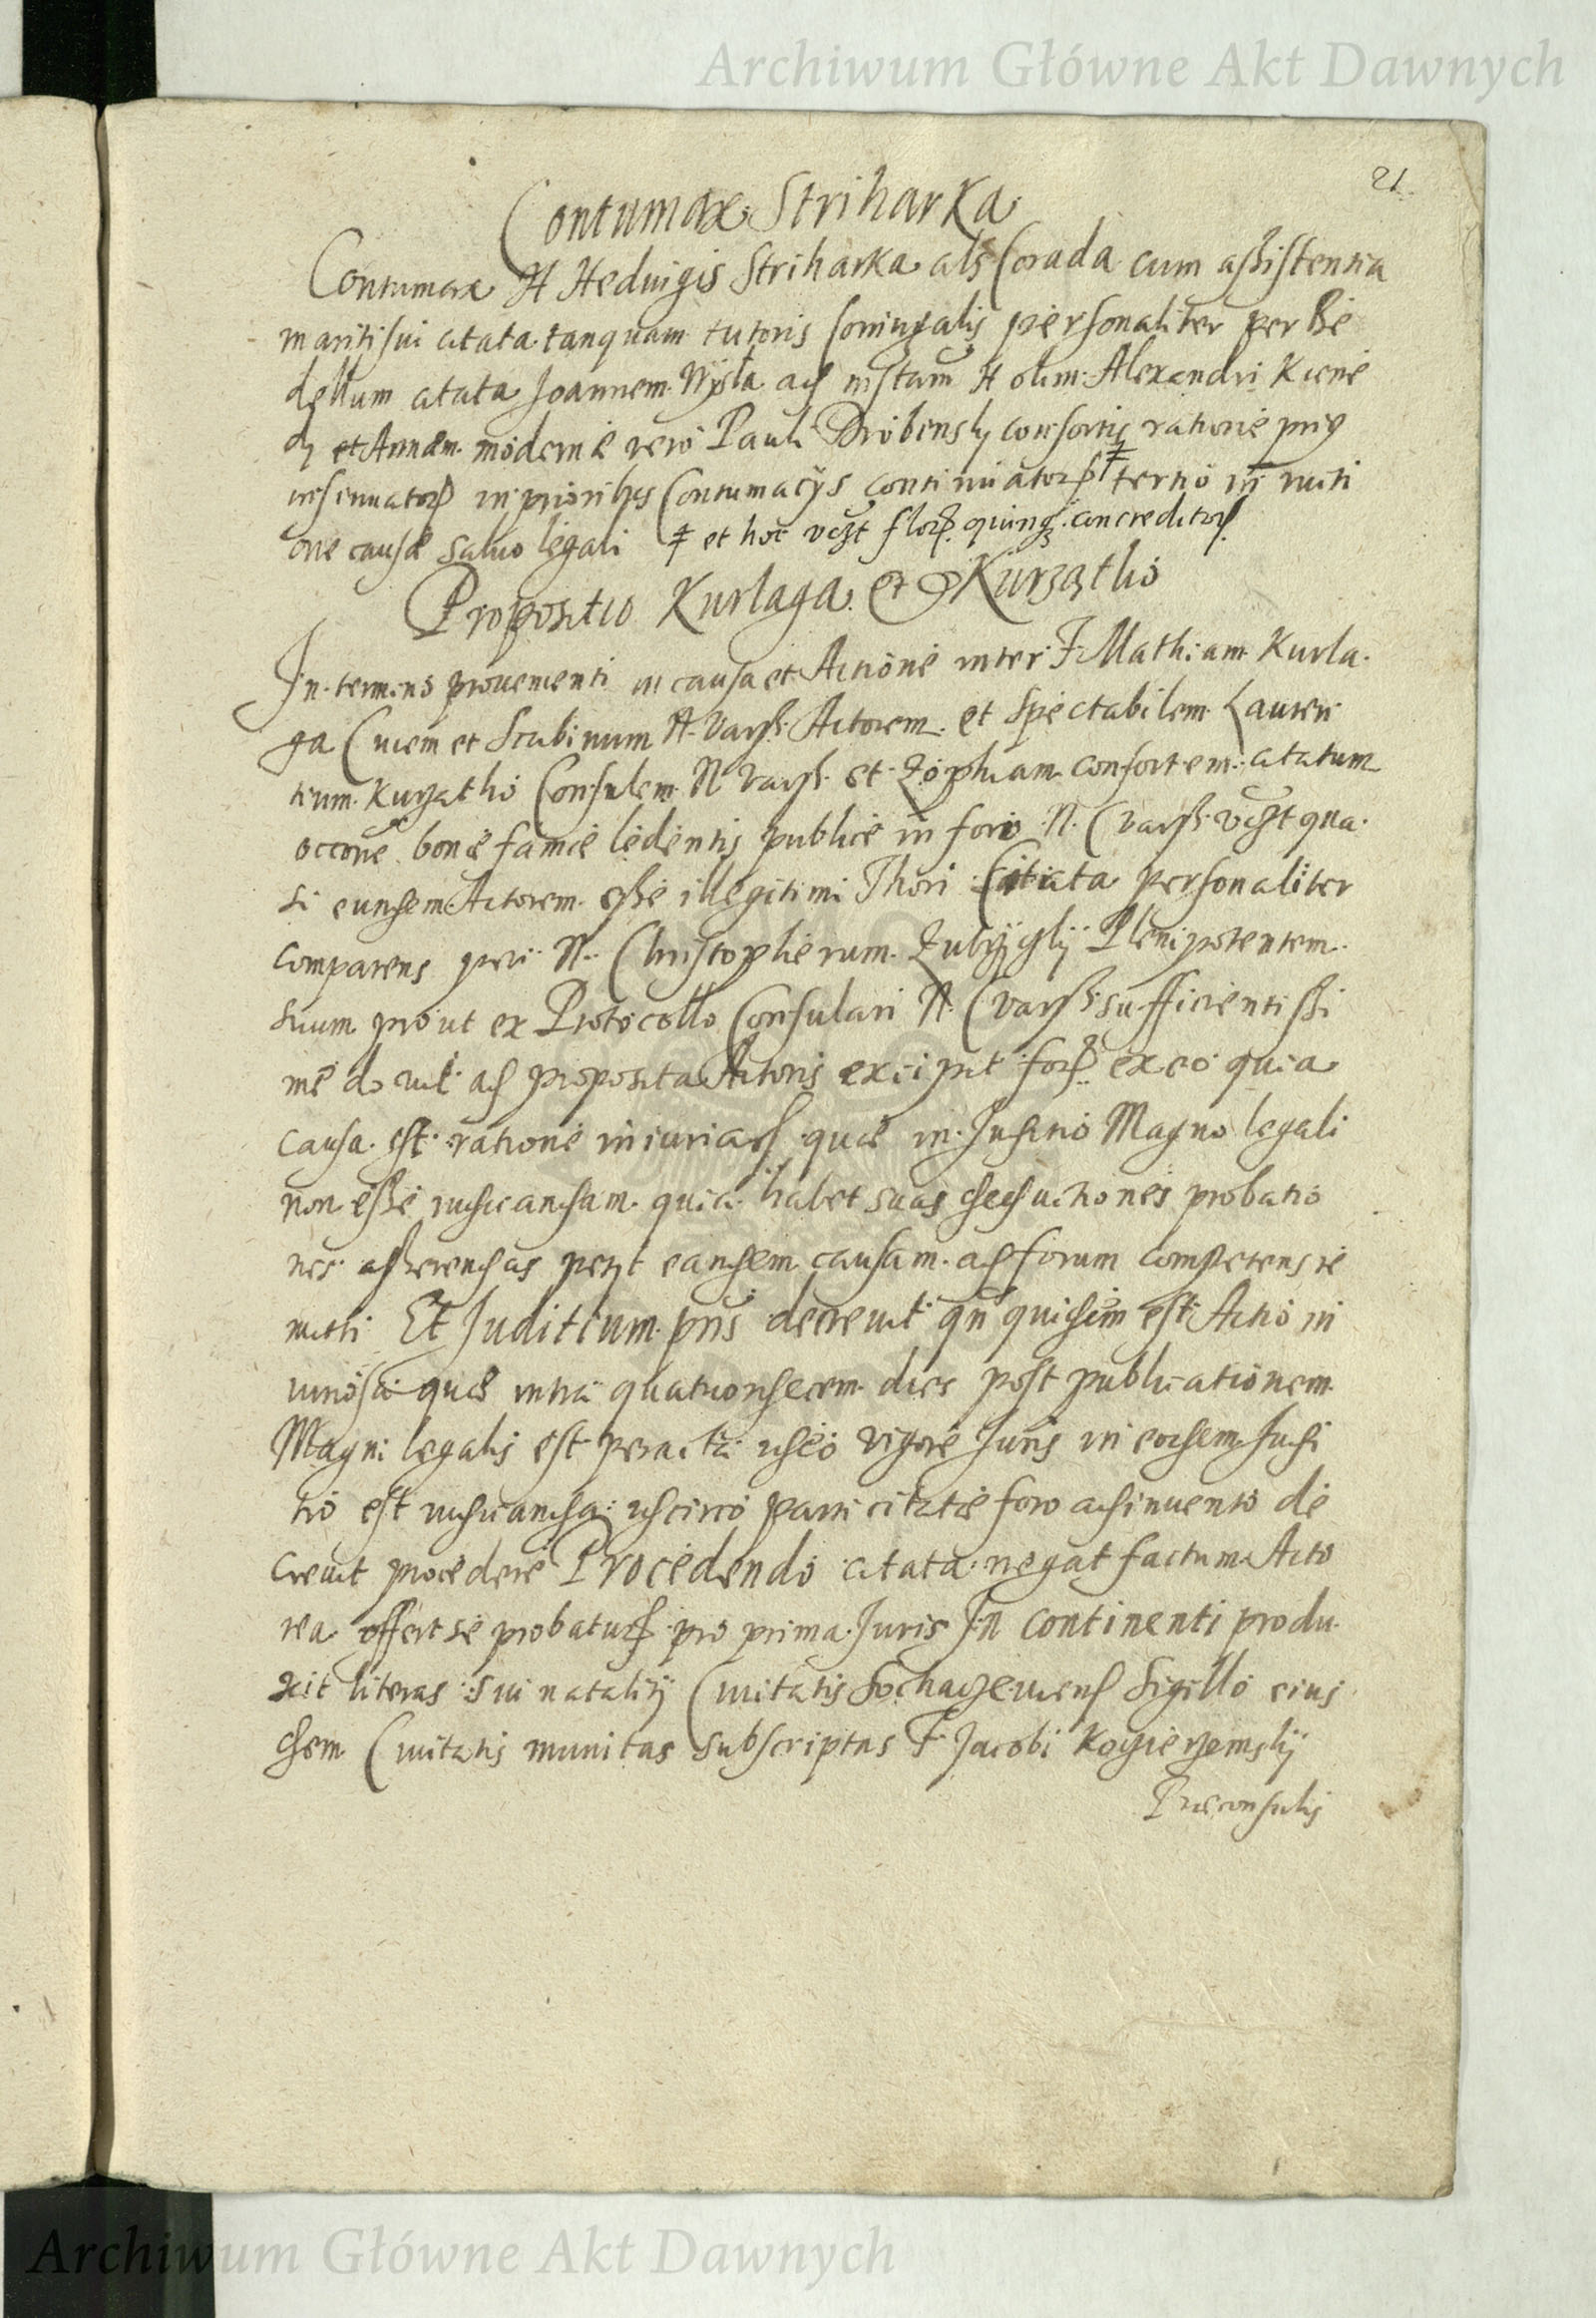 Archiwum Główne Akt Dawnych
21
Contumax Striharka
Contumax H Heduigis Striharka als Corada cum assistentia
mariti sui citata tanquam tutoris coniugalis personaliter per Be
dellum citata Joannem Wysla ad instam H olim Alexandri Kiene
dy et Annam moderne vero Pauli Drobensky consortis ratione
insinuator in prioribus Contumacys continuator tertio in
one causæ salvo legali ǂ et hoc flor quinq concreditor
Propositio Kurlaga et Kurzathio
In termino prouenienti in causa et Actione inter F Mathiam Kurla
ga Ciuem et Scabinum A. Vars. Actorem et Spectabilem Lauren
tium Kurzathio Consulem N Vars. et Zophiam consortem citatum
occone bonæ famæ ledentis publice in foro N. C Vars. qua
si eundem Actorem esse illegitimi Thori Citata personaliter
comparens per N. Christopherum Plenipotentem
suum prout ex Protocollo Consulari N. C Vars. sufficientissi
me docuit ad proposita Actoris excipit for ex eo quia
causa est ratione iniuriar quæ in Juditio Magno legali
non esse iudicandam quia habet suas deductiones probatio
nes asserendas petyt eandem causam ad forum competens re
mitti Et Juditium pns decreuit qn quidem est Actio in
iuriosa quæ intra quatuordecem dies post publicationem
Magni legalis est peracta ideo vigore Juris in eodem Judi
tio est iudicanda idcirco parti citatæ foro adinuento de
creuit procedere Procedendo citata negat factum Acto
rea offert se probatur pro prima Juris In continenti produ
xit literas sui natalitij Ciuitatis Sochaczeuiens Sigillo eius
dem Ciuitatis munitas subscriptas F. Jacobi
Præconsulis
Archiwum Główne Akt Dawnych